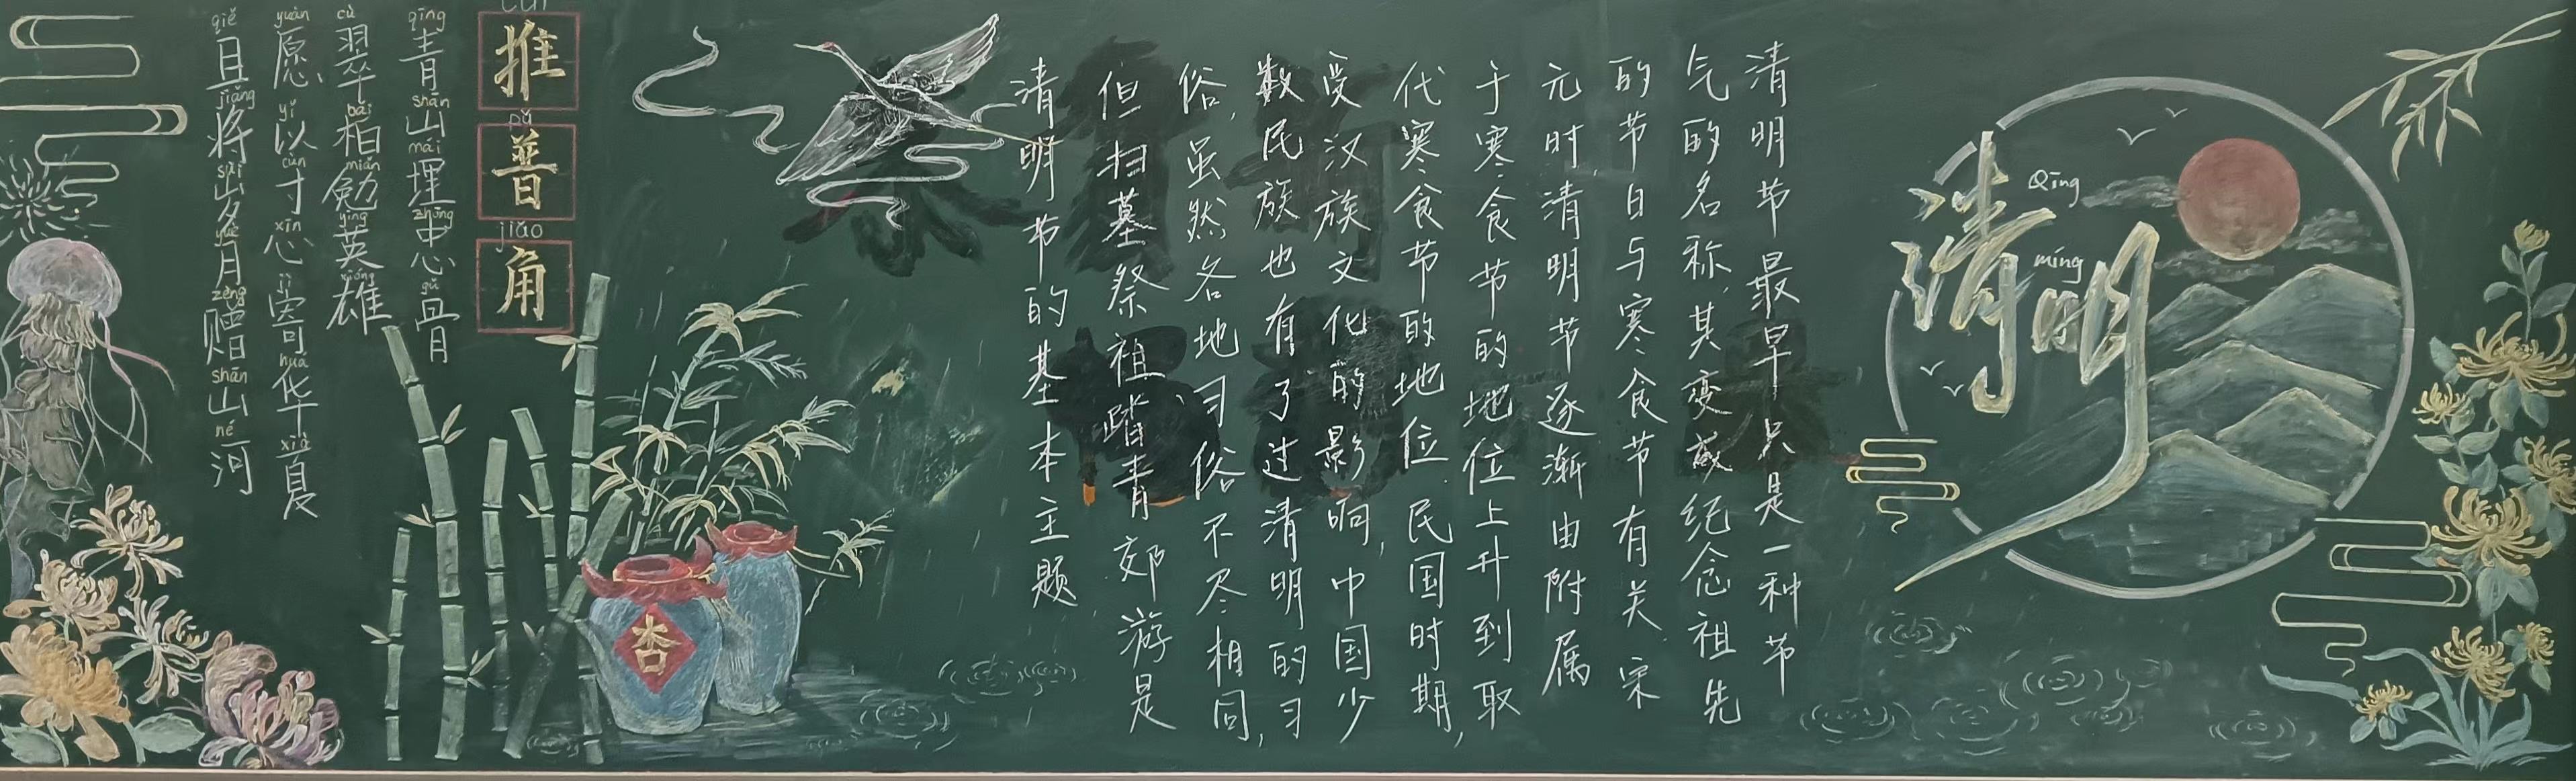 Qīng míng
清明
清明节最早只是一种节
气的名称,其变成纪念祖先
的节日与寒食节有关.宋
元时,清明节逐渐由附属
于寒食节的地位上升到取
代寒食节的地位.民国时期,
受汉族文化的影响,中国少
数民族也有了过清明的习
俗,虽然各地习俗不尽相同,
但扫墓祭祖踏青郊游是
清明节的基本主题.
杏
pǔ jiǎo
推普角
qīng shān mái zhōng gǔ
青山埋忠骨
cù bǎi miǎn yīng xióng
翠柏勉英雄
yuàn yǐ cùn xīn jì huá xià
愿以寸心寄华夏
qiě jiāng suì yuè zèng shān hé
且将岁月赠山河